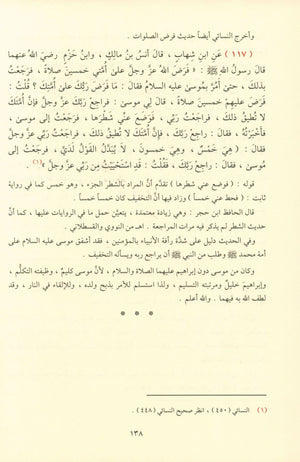 وأخرج النسائي أيضاً حديث فرض الصلوات .
( ١١٧ ) عَنِ ابنِ شِهابٍ ، قالَ أنَسُ بنُ مَالِكٍ ، وابنُ حَزْمٍ رضيَ اللهُ عنهما
قالَ رسولُ اللهِ ﷺ : « فَرَضَ اللهُ عزَّ وجلَّ علىٰ أُمَّتي خمسينَ صلاةً ، فرَجَعْتُ
بذلكَ ، حتىٰ أمُرَّ بموسىٰ عليهِ السلامُ فقالَ : مَا فَرَضَ رَبُّكَ علىٰ أُمَّتِكَ ؟ قُلْتُ :
فَرَضَ عليهِمْ خمسينَ صلاةً ، قالَ لي موسىٰ : فراجِعْ ربَّكَ عزَّ وجلَّ فإنَّ أُمَّتَكَ
لا تُطِيقُ ذلكَ ، فراجعْتُ ربِّي ، فَوَضَعَ عنِّي شَطْرَها ، فرَجَعْتُ إلىٰ موسىٰ ،
فأخْبَرْتُهُ ، فقالَ : راجِعْ ربَّكَ ، فإنَّ أُمَّتَكَ لا تُطِيقُ ذلكَ ، فراجعْتُ ربِّي عزَّ وجلَّ
فقالَ : ( هِيَ خَمْسٌ ، وهِيَ خمسونَ ، لاَ يُبَدَّلُ القَوْلُ لَدَيَّ ، فرجَعْتُ إلىٰ
موسىٰ ، فقالَ : راجِعْ ربَّكَ ، فقُلْتُ : قَدِ اسْتَحْيَيْتُ مِنْ رَبِّي عزَّ وجلَّ »(١) .
قوله : ( فوضع عني شطرها ) تقدَّم أنَّ المراد بالشَّطر الجزء ، وهو خمس كما في رواية
ثابت : ( فحط عني خمساً ) وزاد فيها أنَّ التخفيف كان خمساً خمساً .
قال الحافظ ابن حجر : وهي زيادة معتمدة ، يتعيَّن حمل ما في الروايات عليها ، كما أنَّ
حديث الشطر لم يذكر فيه مرات المراجعة . اهـ من النووي والقسطلاني .
وفي الحديث دليل على شدَّة رأفة الأنبياء بالمؤمنين ، فقد أشفق موسى عليه السلام على
أمة محمد ﷺ وطلب من النبي ﷺ أن يراجع ربه ويسأله التخفيف .
وكان من موسى دون إبراهيم عليهما الصلاة والسلام ، لأنَّ موسى كليمٌ ، وظيفته التكلُّم ،
وإبراهيم خليلٌ ومرتبته التسليم ، ولذا استسلم للأمر بذبح ولده ، وللإلقاء في النار ، وقد
لطف الله به فيهما . والله أعلم .
* * *
(١) النسائي (٤٥٠) ، انظر صحيح النسائي (٤٤٨) .
١٣٨